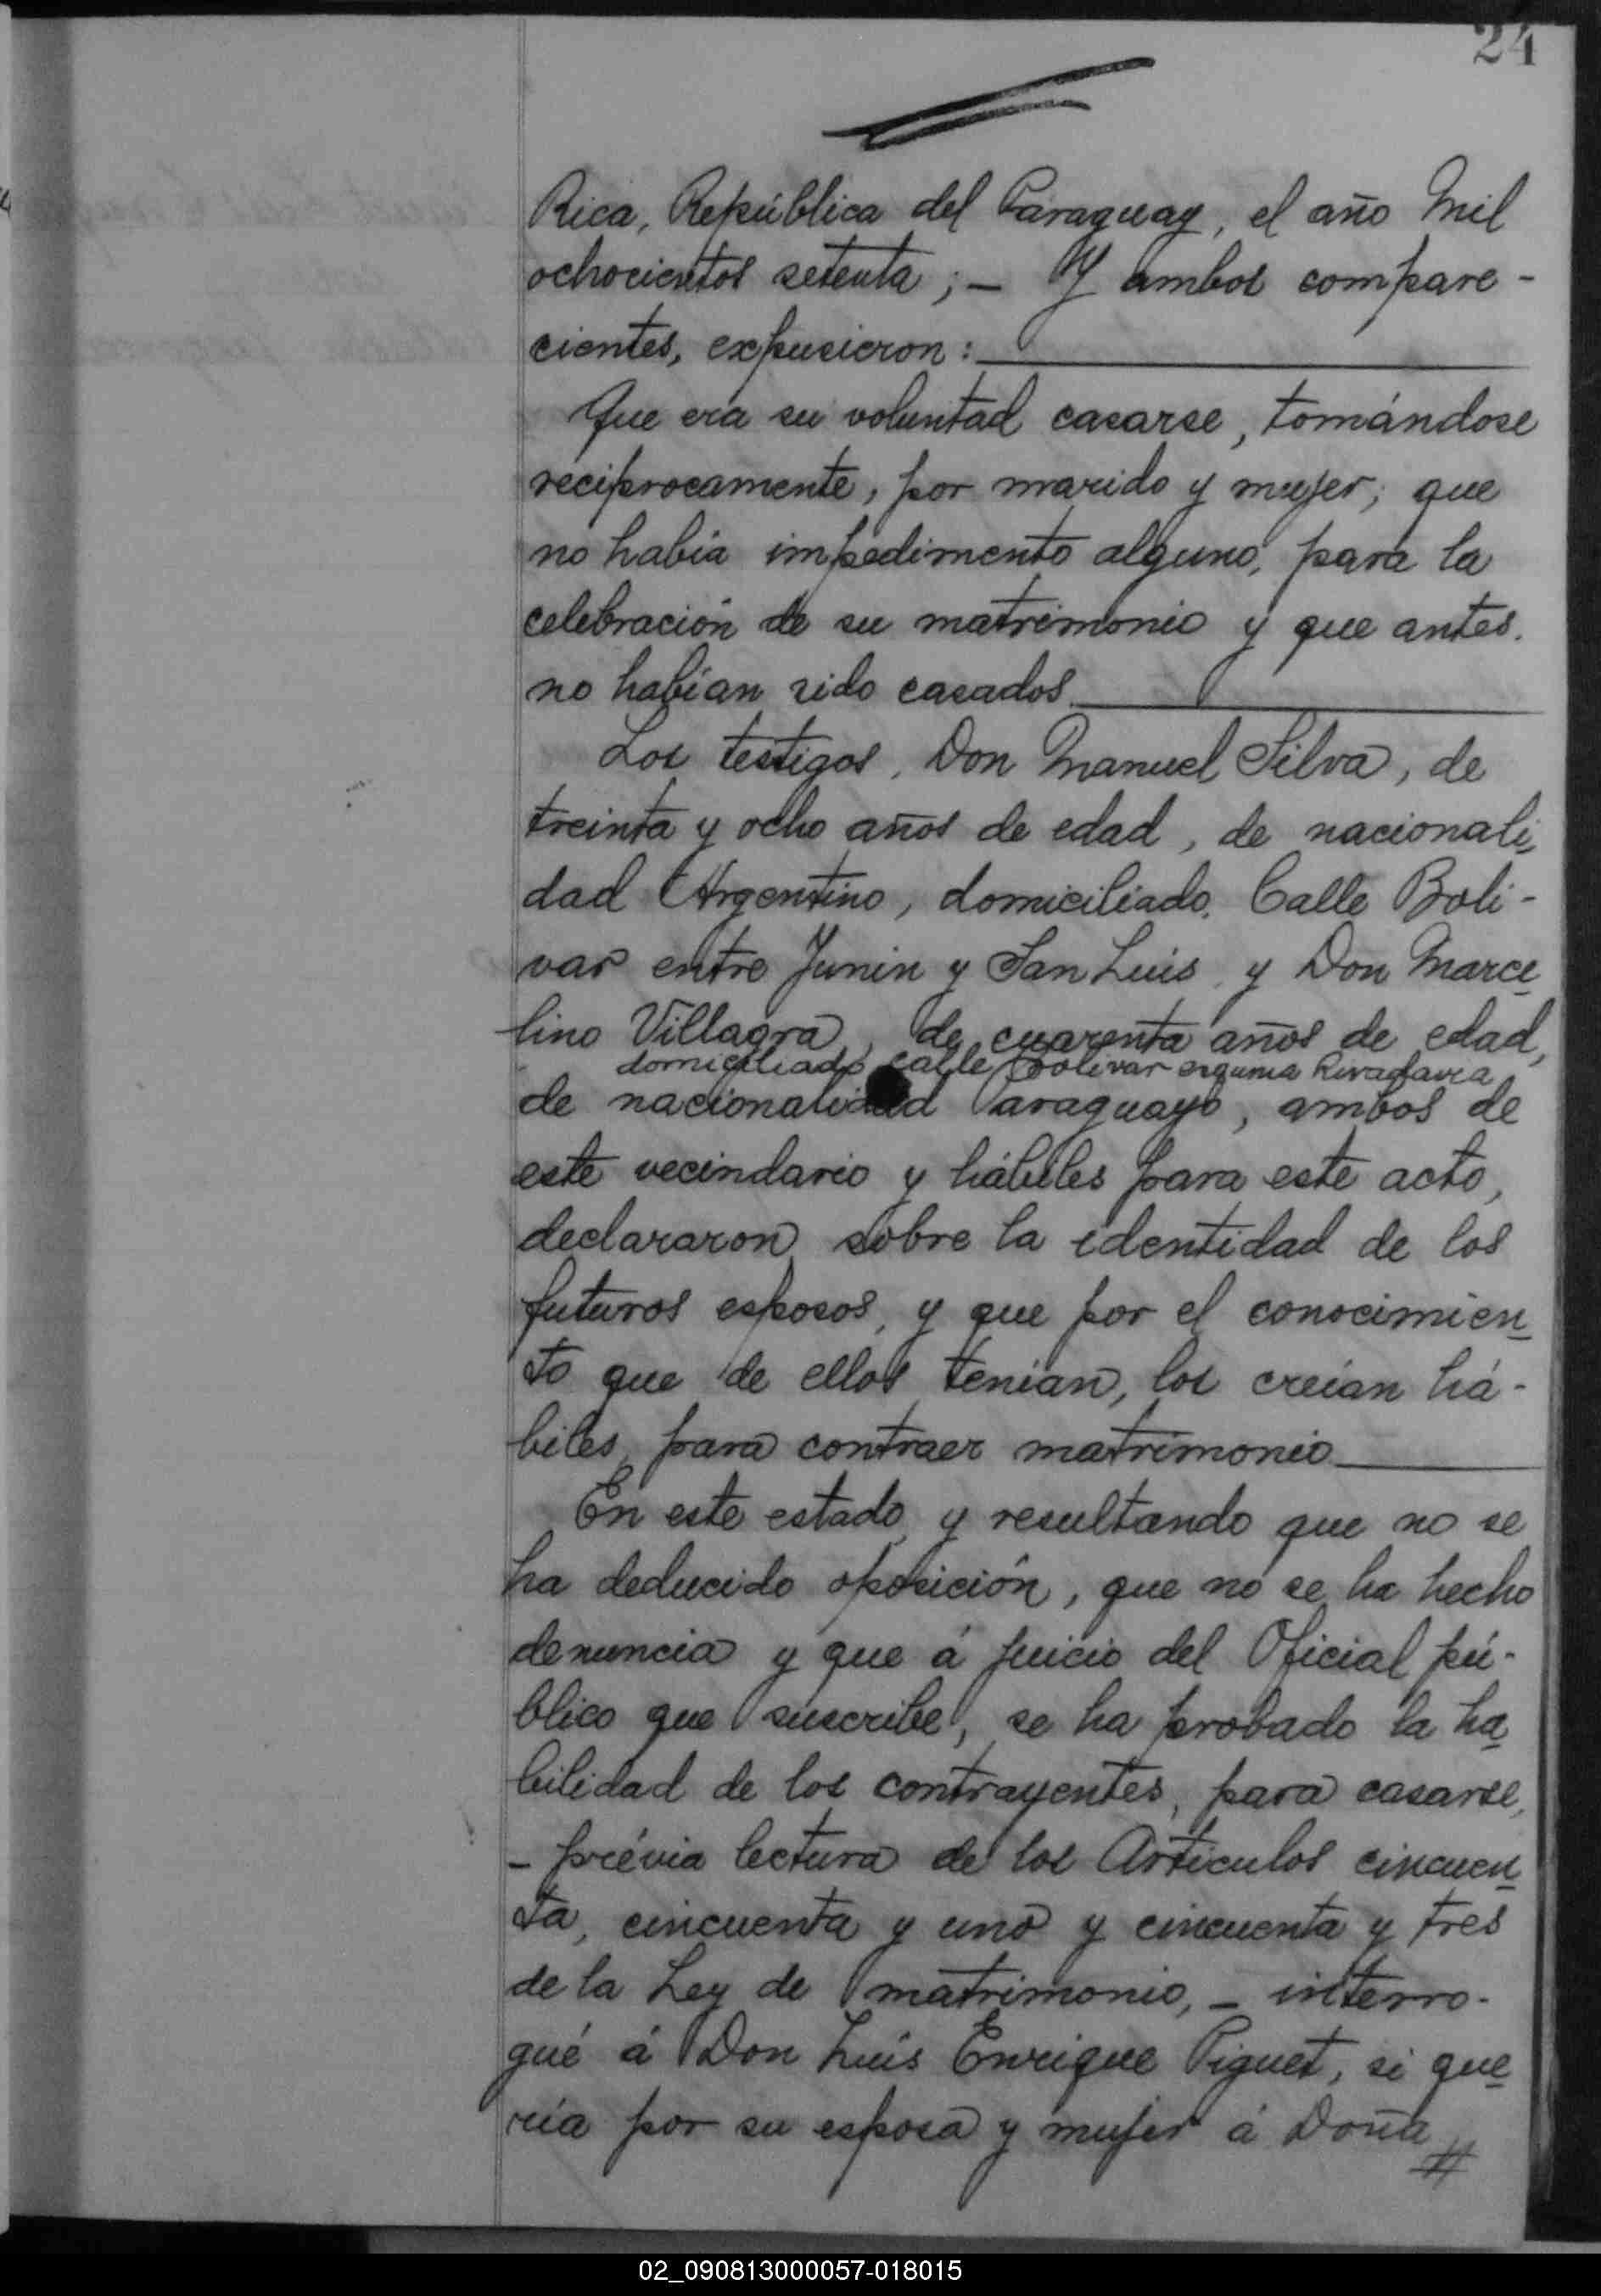 24
Rica, República del Paraguay, el año Mil
ochocientos setenta ; — Y ambos compare -
cientes, expusieron :
Que era su voluntad casarse, tomándose
reciprocamente, por marido y mujer; que
no había impedimento alguno, para la
celebración de su matrimonio y que antes.
no habían sido casados
Los testigos, Don Manuel Silva, de
treinta y ocho años de edad, de nacionali,
dad Argentino, domiciliado, Calle Boli -
var entre Junin y San Luis, y Don Marce
lino Villagra, de cuarenta años de edad,
domiciliado calle Bolivar esquina Rivadavia
de nacionalidad Paraguayo, ambos de
este vecindario y hábiles para este acto,
declararon sobre la identidad de los
futuros esposos, y que por el conocimien
to que de ellos tenían, los creían há -
biles, para contraer matrimonio
En este estado, y resultando que no se
ha deducido oposición, que no se ha hecho
denuncia y que á juicio del Oficial pú -
blico que suscribe, se ha probado la ha
bilidad de los contrayentes, para casarse,
— prévia lectura de los Artículos cincuen
ta, cincuenta y uno y cincuenta y tres
de la Ley de matrimonio, — interro -
gué á Don Luis Enrique Piguet, si que
ría por su esposa y mujer á Doña
02_090813000057-018015